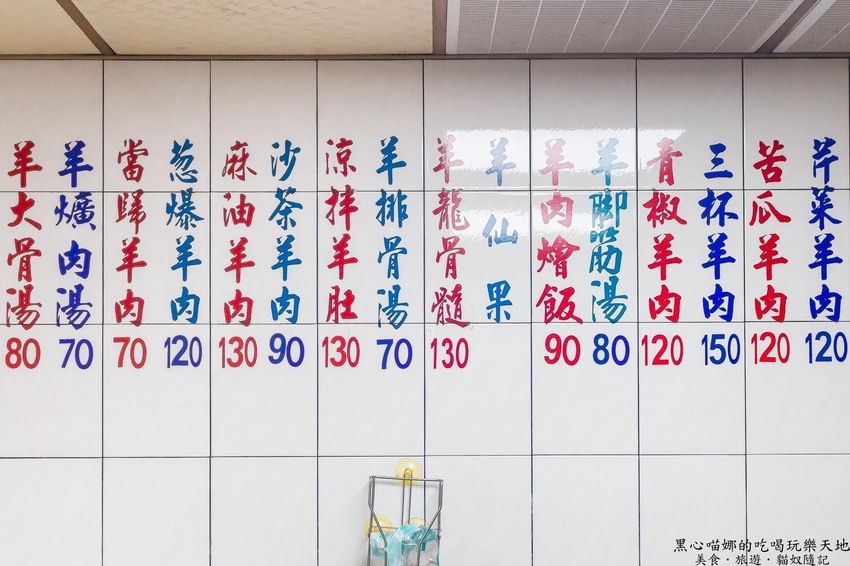 芹菜羊肉
120
苦瓜羊肉
120
三杯羊肉
150
青椒羊肉
120
羊腳筋湯
80
羊肉燴飯
90
羊仙果
羊龍骨髓
130
羊排骨湯
70
涼拌羊肚
130
沙茶羊肉
90
麻油羊肉
130
葱爆羊肉
120
當歸羊肉
70
羊爌肉湯
70
羊大骨湯
80
黑心喵娜的吃喝玩樂天地
美食·旅遊·貓奴隨記